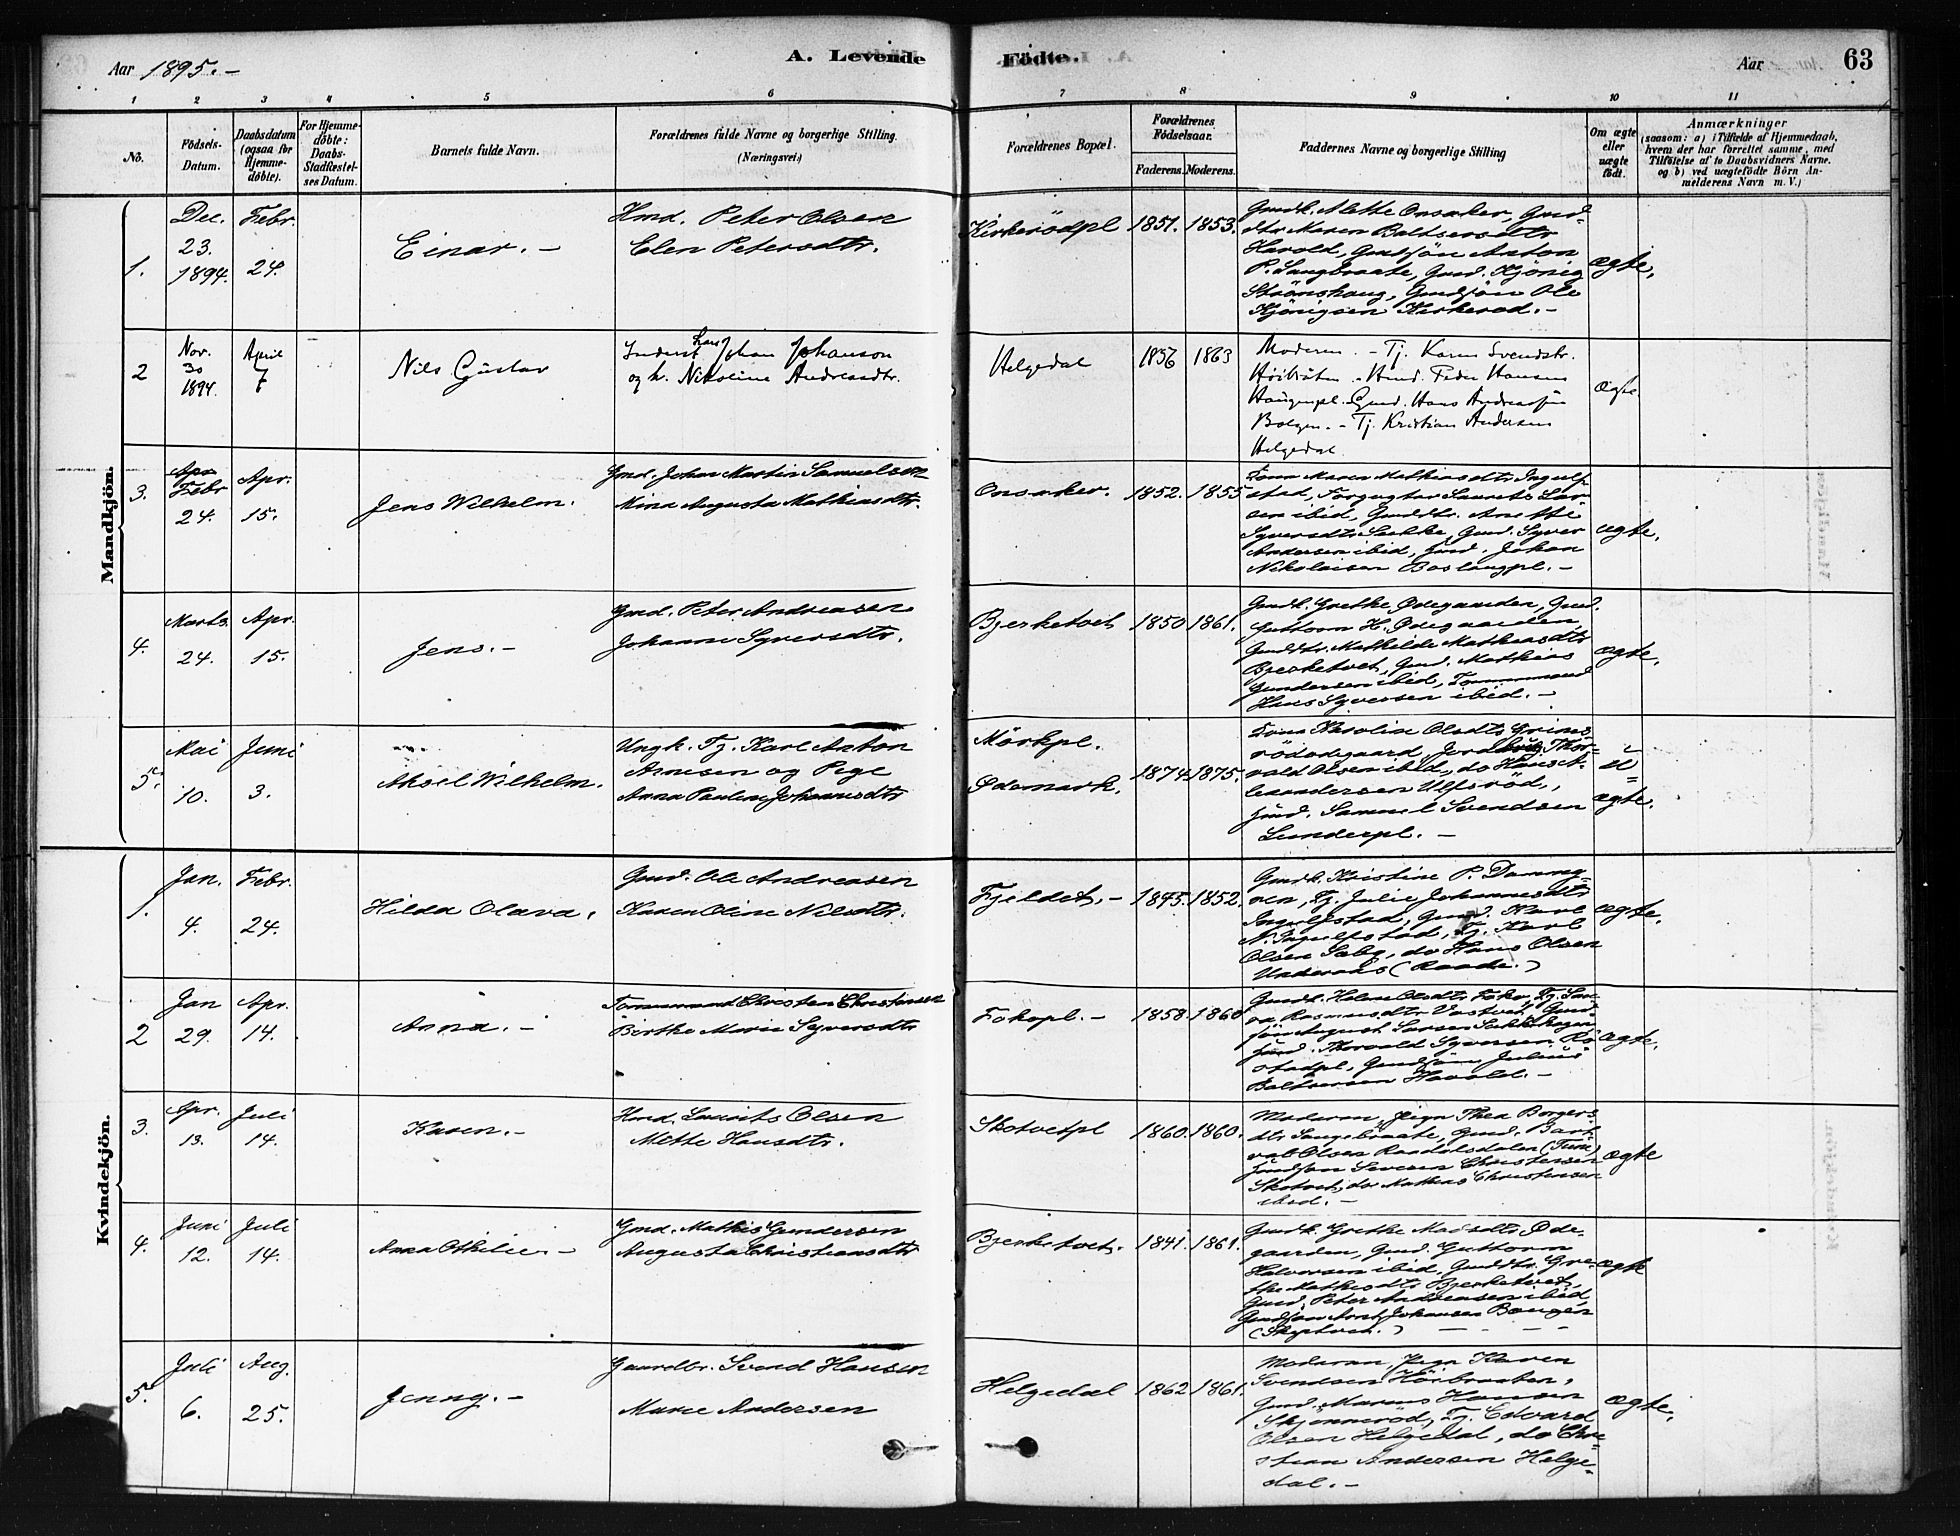 Aar 1895. -
A. Levende
Födte.
Aar
63
1 2 3 4 5 6 7 8 9 10 11
No.
Födsels-
Datum.
Daabsdatum
(ogsaa for
Hjemme-
döbte).
For Hjemme-
döbte:
Daabs-
Stadfæstel-
ses Datum.
Barnets fulde Navn.
Forældrenes fulde Navne og borgerlige Stilling
(Næringsvei.)
Forældrenes Bopæl.
Forældrenes
Födselsaar.
Faderens.
Moderens.
Faddernes Navne og borgerlige Stilling
Om ægte
eller
uægte
født.
Anmærkninger
(saasom: a) i Tilfælde af Hjemmedaab,
hvem der har forrettet samme, med
Tilföielse af to Daabsvidners Navne.
og b) ved uægtefödte Börn An-
melderens Navn m. V.)
Mandkjön.
1.
Dec.
23.
1894.
Febr.
24.
Einar. -
Hmd. Peter Olsen
Elen Petersdtr.
Kirkerödpl
1851.
1853.
Gmdk. Mette Onsaker, Gmd-
dtr. Maren Baltsersdtr
Havold, Gmdsön Anton
P. Langbraate, Gmd. Kjönig
Strönshaug, Gmdsön Ole
Kjönigsen Kirkeröd. -
ægte.
2
Nov.
30
1894.
April
7
Nils Gustav
Inderst Lars Johan Johanson
og h. Nikoline Andreasdtr.
Helgedal
1856
1863
Moderen. - Tj. Karen Svendsdtr.
Höibråten. Hmd. Peder Hansen
Haugenpl. Gmd. Hans Andreassen
. - Tj. Kristian Andersen
Helgedal.
Ægte
3.
Febr
24.
Apr.
15.
Jens Wilhelm.
Gmd. Johan Martin Samuelsen
Nina Augusta Mathiasdtr.
Onsaker.
1852.
1855
Kona Maren Mathiasdtr Ingulf-
stad, Forpagter Laurits Lar-
sen ibid, Gmddtr. Anette
Syversdtr Lække, Gmd. Syver
Andersen ibid, Hmd. Johan
Nikolaisen Baslangpl. -
ægte.
4.
Marts.
24.
Apr.
15.
Jens. -
Gmd. Peter Andreasen
Johanne Syversdtr.
Bjerketvet
1850
1861.
Gmdk. Grethe Ödegaarden, Gmd.
Guttorm H. Ödegaarden,
Gmddtr. Mathilde Mathiasdtr
Bjerketvet, Gmd. Mathias
Gundersen ibid, Tömmermand
Hans Syversen ibid. -
ægte.
5.
Mai
10.
Juni
3.
Aksel Wilhelm.
Ungk. Tj. Karl Anton
Arnesen og Pige
Anna Pauline Johannesdtr
Mörkpl.
Ödemark.
1874
1875.
Kona Karoline Olsdtr Grims-
rödödegaard, Jordbrug Thor-
vald Olsen ibid, do Hans A-
leksandersen Ulfsröd,
Hmd. Samuel Svendsen
Lunderpl. -
u=
ægte.
Kvindekjön.
1.
Jan.
4.
Febr.
24.
Hilda Olava.
Gmd. Ole Andreasen
Karen Oline Nilsdtr.
Fjeldet. -
1845.
1852.
Gmdk. Kristine P. Damng-
en, Tj. Julie Johannesdtr
Ingulfstad, Gmd. Karl
N. Ingulfstad, Tj. Karl
Olsen Sæby, do Hans Olsen
(Raade.)
ægte.
2
Jan
29.
Apr.
14.
Anna. -
Tömmermand Christen Christensen
Birthe Marie Syversdtr
Fokopl. -
1858.
1860
Gmdk. Helene Olsdtr Foko, Tj. Lau-
ra Rasmusdtr Vastvet, Gmd-
sön August Larsen Lækkehagen
Hmd. Thorvald Syversen Ro-
stadpl, Gmdsön Julius
Baltsersen Havold. -
ægte.
3.
Apr.
13.
Juli
14.
Karen. -
Hmd. Lauritz Olsen
Mette Hansdtr.
Skotvetpl
1860.
1860.
Moderen, Pign Thea Borgers-
dtr Langebraate, Gmd. Bort-
val Olsen Raadalsdalen (Tune)
Gmdsön Severin Christensen
Skotvet, do Mathias Christensen
ibid. -
ægte
4.
Juni
12.
Juli
14.
Anna Othilie -
Gmd. Mathis Gundersen
Augusta Christiansdtr
Bjerketvet.
1841.
1861.
Gmdk. Grethe Madsdtr Öde-
gaarden, Gmd. Guttorm
Halvorsen ibid, Gmddtr. Gre-
the Mathisdtr Bjerketvet,
Gmd. Peter Andreasen ibid,
Gmdsön Arnt Johansen Baugen
(Skiptvet.) - - - -
ægte
5.
Juli
6.
Aug.
25.
Jenny. -
Gaardbr. Svend Hansen
Marie Andersen
Helgedal
1862
1861.
Moderen, Pign Karen
Svendsen Höibraaten,
Gmd. Marens Hansen
Skjönneröd, Tj. Edvard
Olsen Helgedal, do Chri-
stian Andersen Helge-
dal. -
ægte.